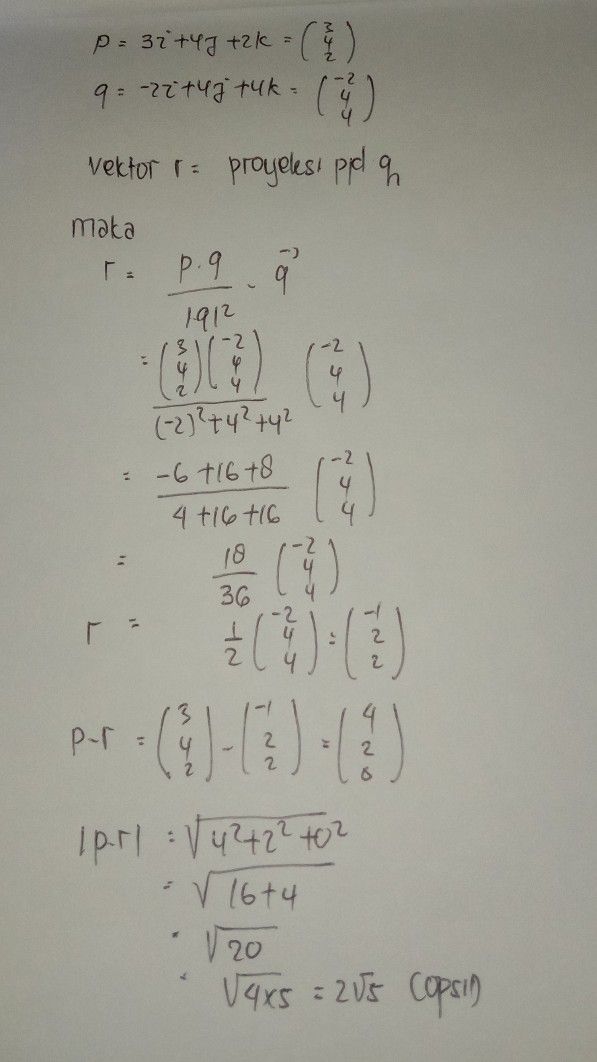 p = 3i + 4j + 2k = (3 4 2)
q = -2i + 4j + 4k = (-2 4 4)
Vektor r = proyeksi p pd q
maka
r = p.q / |q|² . q→
= (3 4 2)(-2 4 4) / (-2)² + 4² + 4² (-2 4 4)
= -6 + 16 + 8 / 4 + 16 + 16 (-2 4 4)
= 18/36 (-2 4 4)
r = 1/2 (-2 4 4) = (-1 2 2)
p-r = (3 4 2) - (-1 2 2) = (4 2 0)
|p-r| = √4² + 2² + 0²
= √16 + 4
= √20
= √4x5 = 2√5